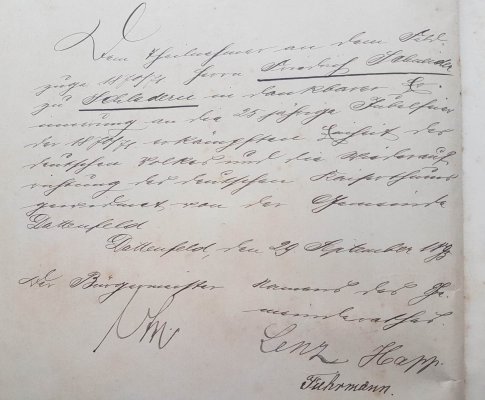 Dem Theilnehmer an dem Feld
zuge 1870/71 Herrn Friedrich Schneider
zu Schladern in dankbarer Er-
innerung an die 25 jährige Jubelfeier
der 1870/71 erkämpften Einheit des
deutschen Volkes und die Wiederauf
richtung des deutschen Kaiserthums
gewidmet, von der Gemeinde
Dattenfeld
Dattenfeld, den 29 September 1895
Der Bürgermeister Namens des Ge-
meinderathes.
Lenz Happ
Fuhrmann.